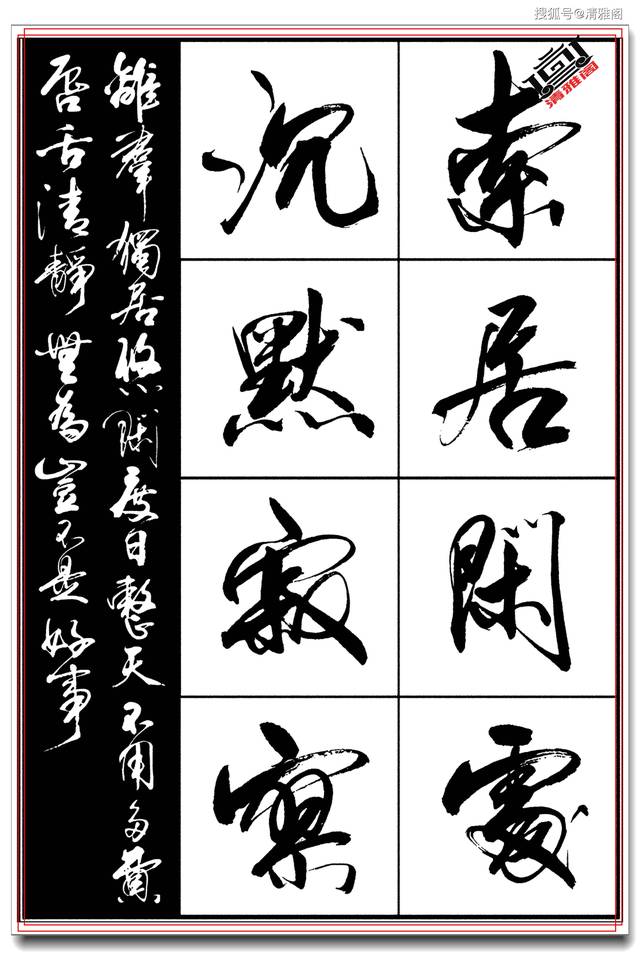 搜狐号@清雅阁
清雅阁
索居閑處
沉默寂寥
離羣獨居悠閑度日整天不用多費
唇舌清靜無為豈不是好事